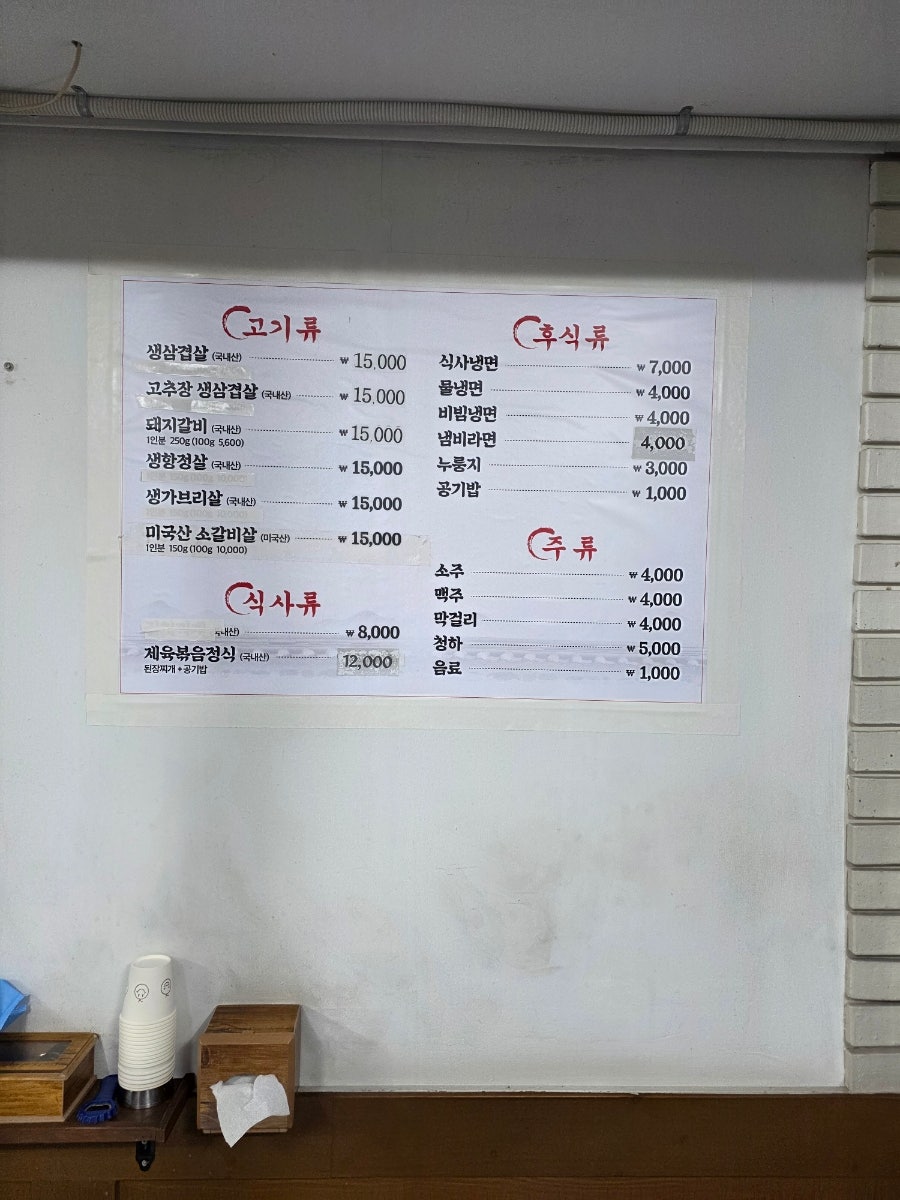 고기류
생삼겹살 (국내산) ₩ 15,000
고추장 생삼겹살 (국내산) ₩ 15,000
돼지갈비 (국내산) ₩ 15,000
1인분 250g (100g 5,600)
생항정살 (국내산) ₩ 15,000
생가브리살 (국내산) ₩ 15,000
미국산 소갈비살 (미국산) ₩ 15,000
1인분 150g (100g 10,000)
식사류
₩ 8,000
제육볶음정식 (국내산) 12,000
된장찌개 + 공기밥
후식류
식사냉면 ₩ 7,000
물냉면 ₩ 4,000
비빔냉면 ₩ 4,000
냄비라면 4,000
누룽지 ₩ 3,000
공기밥 ₩ 1,000
주류
소주 ₩ 4,000
맥주 ₩ 4,000
막걸리 ₩ 4,000
청하 ₩ 5,000
음료 ₩ 1,000